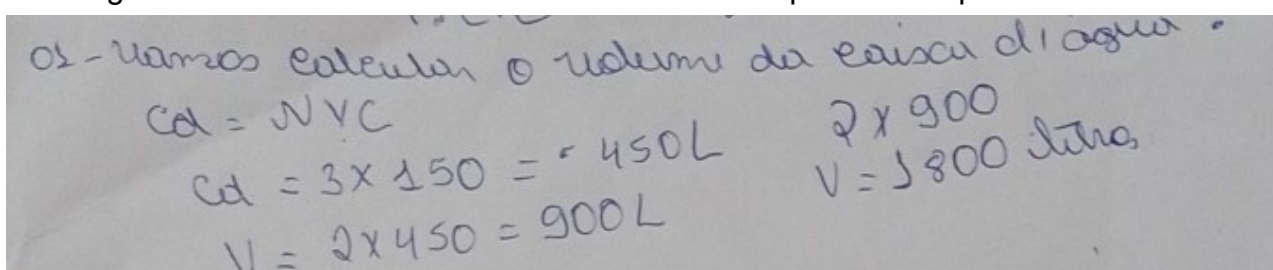 01-Vamos calcular o volume da caixa d'agua.
Cd = NxC
Cd = 3x150 = 450L
V = 2x450 = 900L
2x900
V = 1800 litros